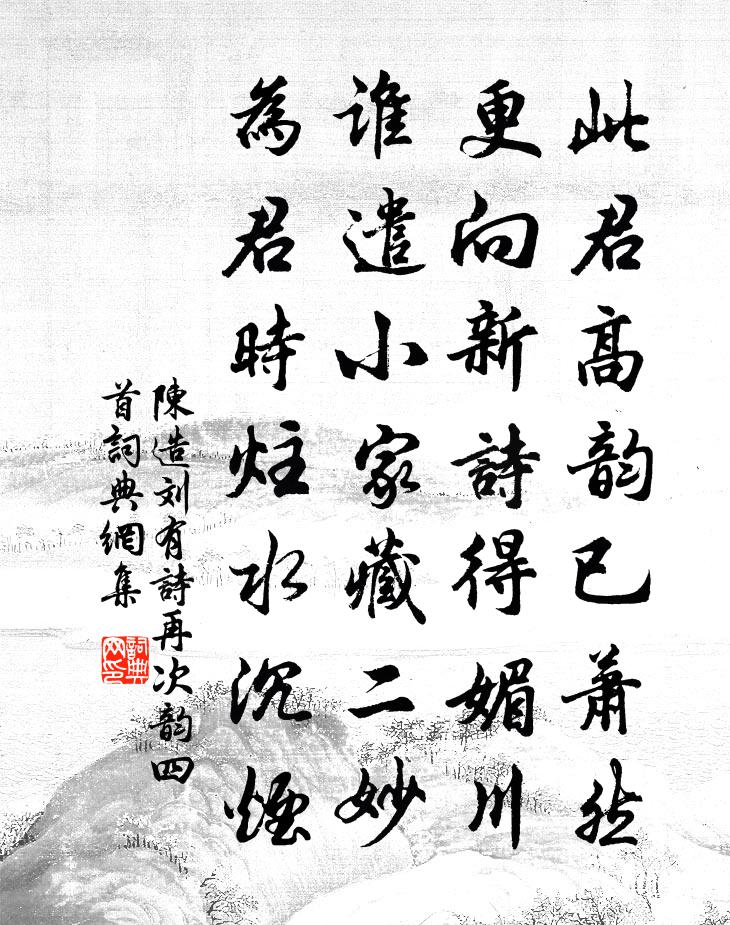 此君高韵已萧然
更向新詩得媚川
谁遣小家藏二妙
為君時炷水沉煙
陳造刘有詩再次韵四
首詞典網集
詞典網印